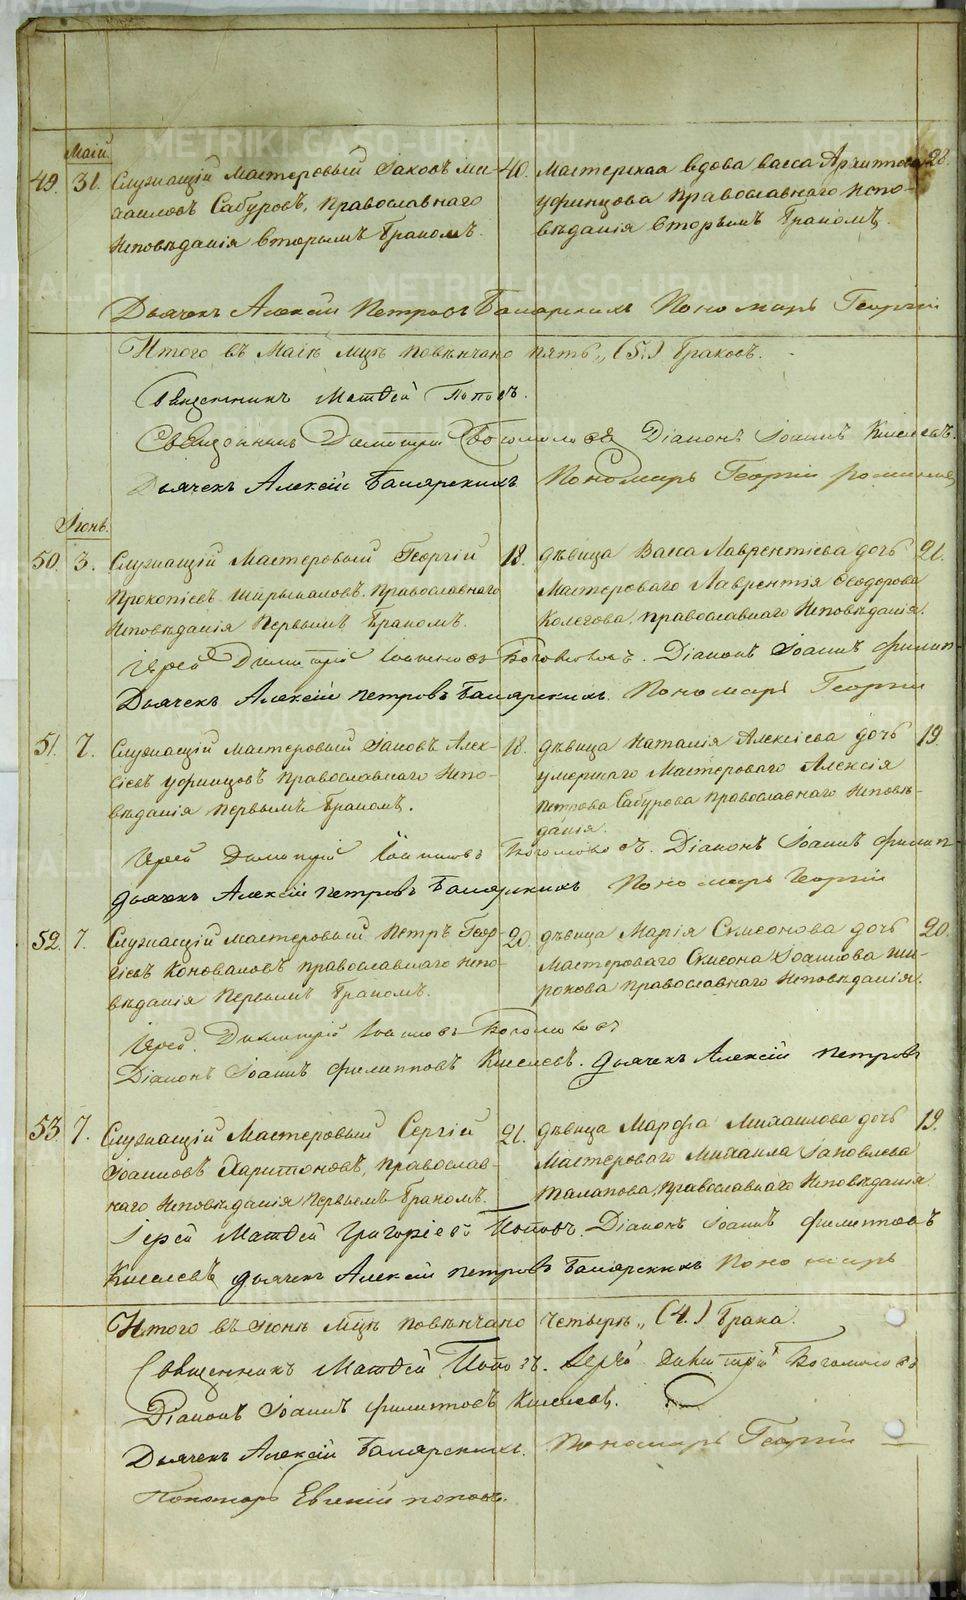 Маій
49. 31. Служащій Мастеровый Іаковъ Ми- 40. Мастерская вдова Васса Архиппова 28.
хаиловъ Сабуровъ, Православнаго Уфинцова Православнаго Испо-
Исповѣданія Вторымъ бракомъ. вѣданія Вторымъ бракомъ.
Дьячекъ Алексій Петровъ Пономарь Георгій
Итого въ Маіѣ Мцѣ повѣнчано пять „ (5.) браковъ.
Священникъ Матѳей Поповъ.
Священникъ Димитрій Богомоловъ Діаконъ Іоаннъ Киселевъ.
Дьячекъ Алексій Пономарь Георгій
Іюнь.
50. 3. Служащій Мастеровый Георгій 18. дѣвица Васса Лаврентіева дочь 21.
Прокопіевъ Ширыкаловъ, Православнаго Мастероваго Лаврентія Ѳеодорова
Исповѣданія Первымъ бракомъ. Колегова, Православнаго Исповѣданія.
Іерей Димитрій Іоанновъ Богомоловъ. Діаконъ Іоаннъ Филип-
Дьячекъ Алексій Петровъ Пономарь Георгій
51. 7. Служащій Мастеровый Іаковъ Алек- 18. дѣвица Наталія Алексіева дочь 19.
сіевъ Уфинцовъ Православнаго Испо- умершаго Мастероваго Алексія
вѣданія первымъ бракомъ. Петрова Сабурова Православнаго Исповѣ-
данія.
Іерей Димитрій Іоанновъ Богомоловъ. Діаконъ Іоаннъ Филип-
Дьячекъ Алексій Петровъ Пономарь Георгій
52. 7. Служащій Мастеровый Петръ Геор- 20. дѣвица Марія Симеонова дочь 20.
гіевъ Коноваловъ Православнаго Испо- Мастероваго Симеона Іоаннова Ши-
вѣданія Первымъ бракомъ. рокова Православнаго Исповѣданія.
Іерей Димитрій Іоанновъ Богомоловъ
Діаконъ Іоаннъ Филипповъ Киселевъ. Дьячекъ Алексій Петровъ
53. 7. Служащій Мастеровый Сергій 21. дѣвица Марфа Михаилова дочь 19.
Іоанновъ Харитоновъ, Православ- Мастероваго Михаила Іаковлева
наго Исповѣданія Первымъ бракомъ. Талапова, Православнаго Исповѣданія
Іерей Матѳей Григоріевъ Поповъ. Діаконъ Іоаннъ Филипповъ
Киселевъ Дьячекъ Алексій Петровъ Пономарь
Итого въ Іюнѣ Мцѣ повѣнчано четыре „ (4.) брака.
Священникъ Матѳей Поповъ. Іерей Димитрій Богомоловъ
Діаконъ Іоаннъ Филипповъ Киселевъ.
Дьячекъ Алексій Пономарь Георгій
Пономарь Евгеній Поповъ.
METRIKI.GASO-URAL.RU